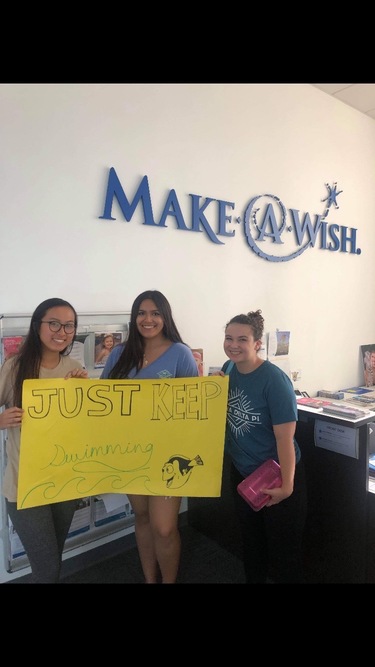 MAKE·A·WISH.
JUST KEEP
Swimming
DELTA PI